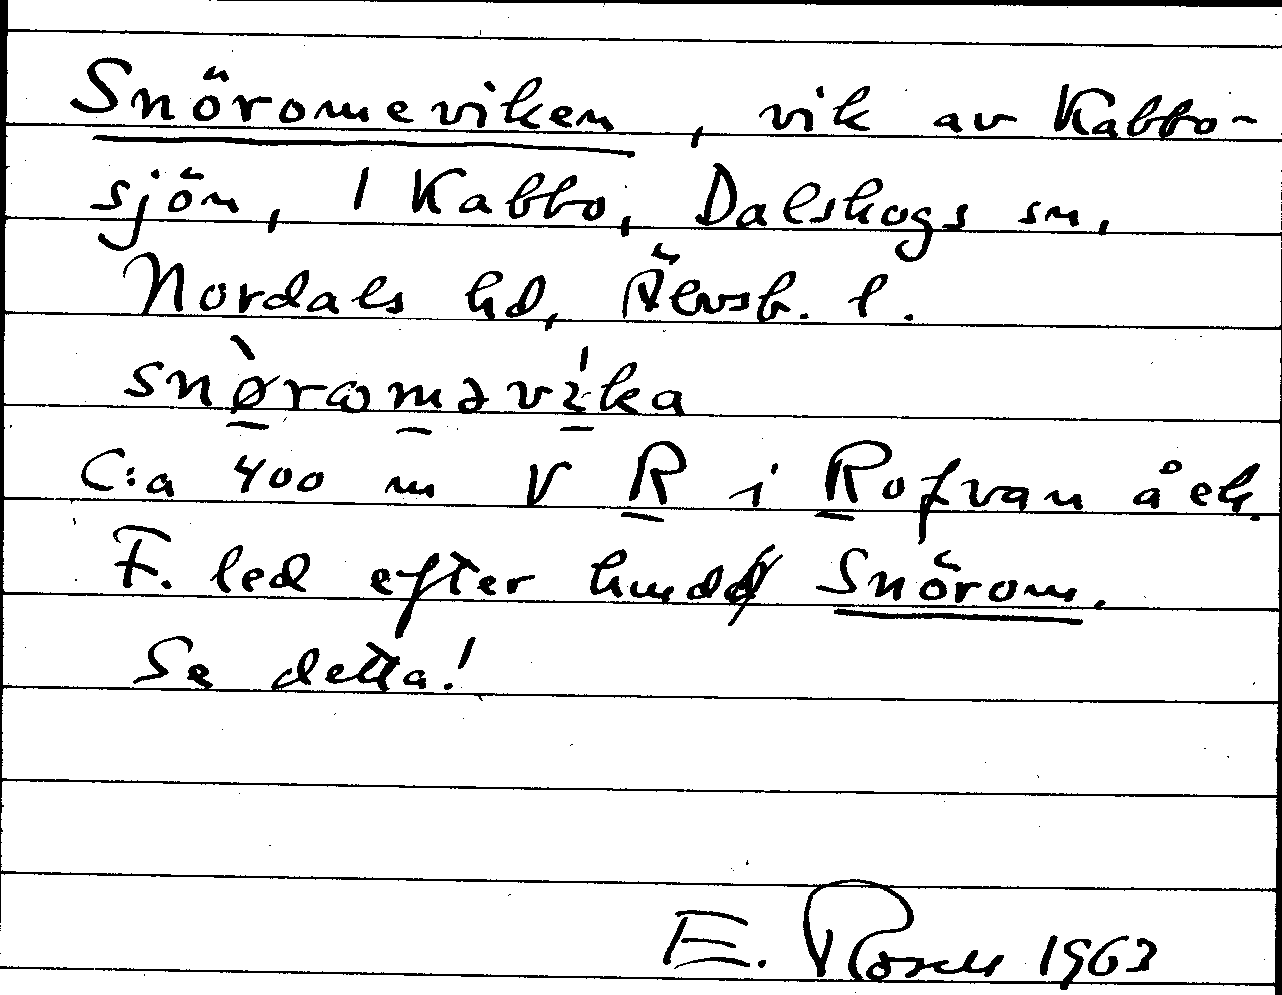 Snöromeviken, vik av Kabbo-
sjön, 1 Kabbo, Dalskogs sn,
Nordals hd, Älvsb. l.
snø̀ramavi̍ka
C:a 400 m V R i Rofvan å ek.
F. led efter hmd Snörom.
Se detta!
E. 1963